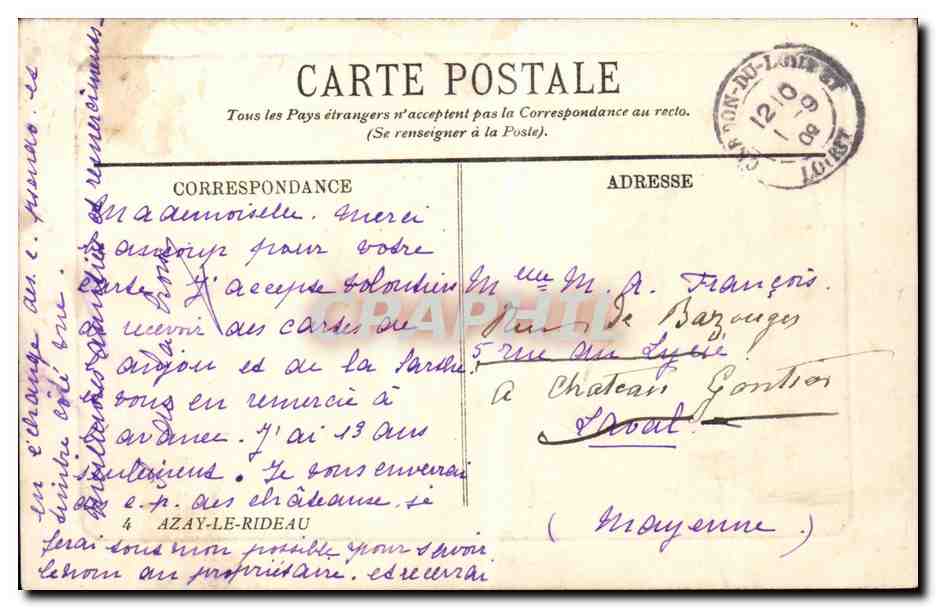 CARTE POSTALE
Tous les Pays étrangers n'acceptent pas la Correspondance au recto.
(Se renseigner à la Poste).
CORRESPONDANCE
Mademoiselle. Merci
beaucoup pour votre
carte. J'accepte volontiers
de recevoir des cartes de
anjou et de la Sarthe
vous en remercie à
avance. J'ai 13 ans
seulement. Je vous enverrai
des c. p. des châteaux, je
4 AZAY-LE-RIDEAU
ferai tous mon possible pour savoir
le nom au propriétaire. et recevrai
en échange des c. pseudo. et
timbre côté vue.
amitiés et remerciements
ADRESSE
Melle M. A. François.
Rue de Bazouges
5 rue du Lycée
a Chateau Gontier
Laval.
(Mayenne)
-DU-LOIRET
12 10
1 -9
09
LOIRET
CPAPHIL